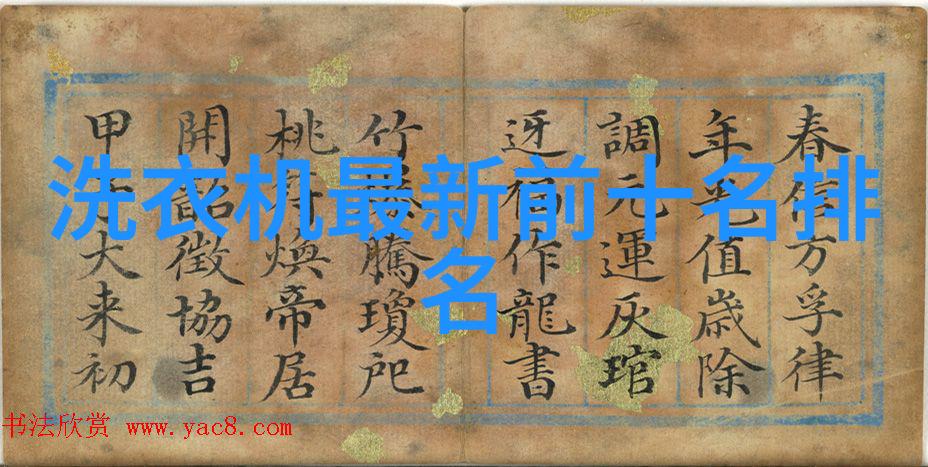 洗衣机最新前十名排
名
春信方孚律
年光值歲除
調元運灰琯
迓福作龍書
竹騰瓊
桃符煥帝居
開韶徵協吉
甲子大来初
书法欣赏 www.yac8.com